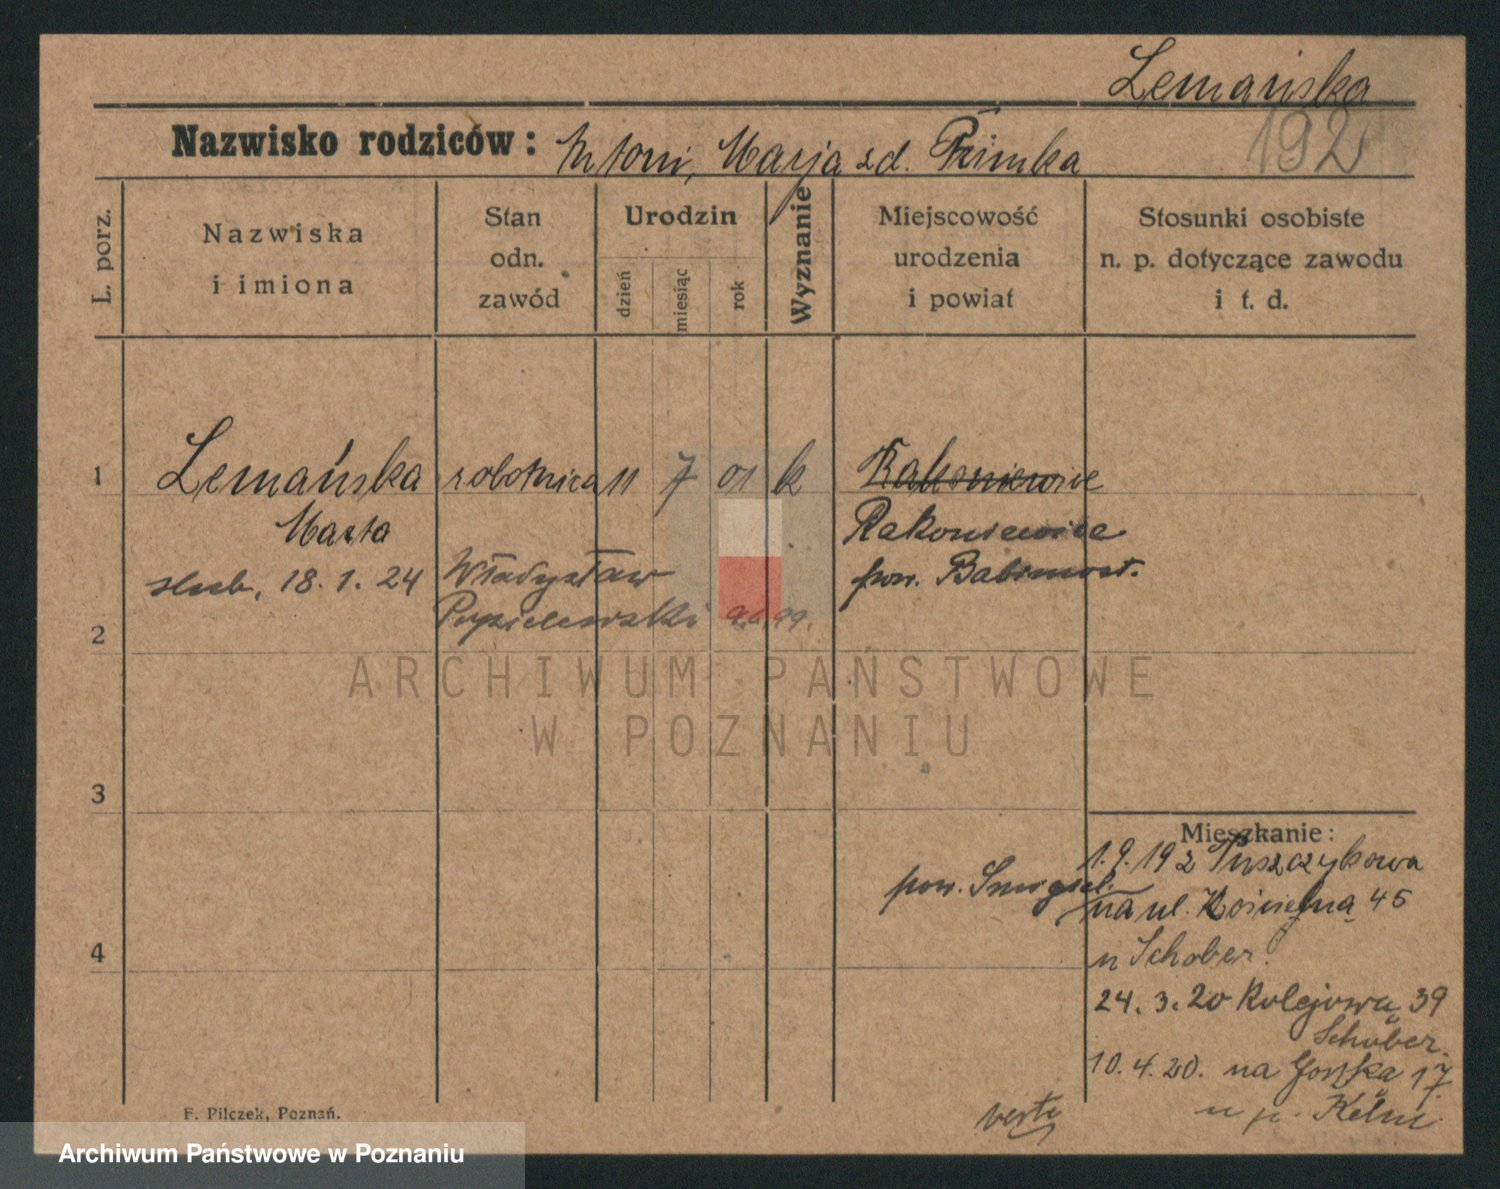 Lemańska
192
Nazwisko rodziców: Antoni, Marja zd.
L. porz.
Nazwiska
i imiona
Stan
odn.
zawód
Urodzin
dzień
miesiąc
rok
Wyznanie
Miejscowość
urodzenia
i powiat
Stosunki osobiste
n. p. dotyczące zawodu
i t. d.
1 Lemańska robotnica 11 7 01 k Rakoniewice
Marta Rakoniewice
ślub. 18. 1. 24 Władysław pow. Babimost.
2
ARCHIWUM PAŃSTWOWE
W POZNANIU
3
Mieszkanie:
1. 9. 19 z Puszczykowa
pow. Śmigiel.
na ul. Kościelną 45
u Schober.
4
24. 3. 20 Kolejowa 39
Schober.
10. 4. 20. na 17
u p.
verte
F. Pilczek, Poznań.
Archiwum Państwowe w Poznaniu